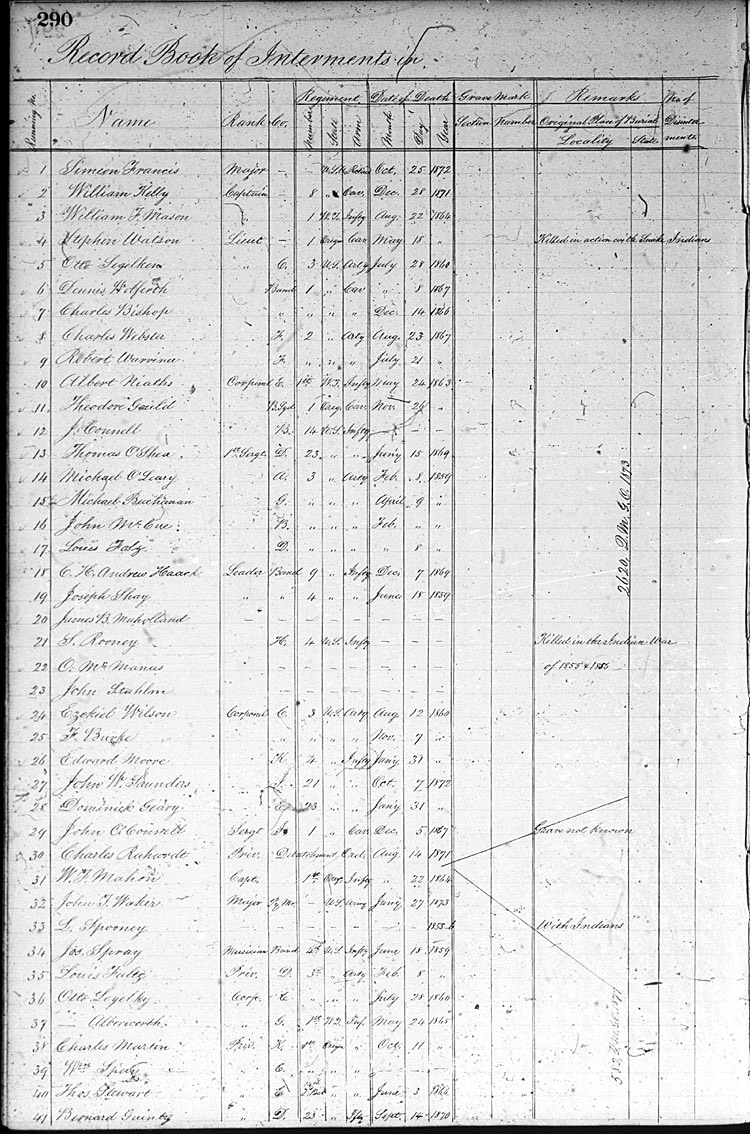 290
Record Book of Interments in
Running No. Name Rank Co. Regiment Date of Death Grave Mark Remarks No. of
Number State Arm Month Day Year Section Number Original Place of Burial
Locality State
1 Simeon Francis Major – – U.S.A. Oct. 25 1872
2 William Kelly Captain – 8 " Cav. Dec. 28 1871
3 William F. Mason 1 W.T. Infty Aug. 22 1864
4 Stephen Watson Lieut – 1 Oregn Cav. May 18 " Killed in action with Snake Indians
5 Otto Segelken " C. 3 U.S. Arty July 28 1860
6 Dennis Band 1 " Cav " 8 1867
7 Charles Bishop " " " " Dec. 14 1866
8 Charles Webster F. 2 " Arty Aug. 23 1867
9 Robert F. " " " July 21 "
10 Albert Corporal E. 1st W.T. Infty May 24 1863
11 Theodore Guild 1 Oreg. Cav. Nov 26 "
12 J. Connell B. 14 U.S. Infty – – –
13 Thomas O'Shea 1st Sergt. D. 23 " " Jany 15 1869
14 Michael O'Leary A. 3 " Arty Feb. 8 1859
15 Michael Buchanan G. " " " April 9 "
16 John McCue B. " " " Feb. " "
17 Louis D. " " " " 8 "
18 C. H. Andrew Haack Leader Band 9 " Infty Dec. 7 1869
19 Joseph Shay " " 4 " " June 18 1859
20 James B. Muholland – – – – – – –
21 S. Rooney H. 4 U.S. Infty – – – Killed in the Indian War
22 O. McManus – – – – – – – of 1855 & 1856
23 John Stuhlm – – – – – – –
24 Ezekiel Wilson Corporal C. 3 U.S. Arty Aug 12 1860
25 F. Burke " " " " Nov. 7 "
26 Edward Moore K. 4 " Infty Jany 31 "
27 John W. Saunders I. 21 " " Oct. 7 1872
28 Dominick Geary E. 23 " " Jany 31 "
29 John O'Connell Sergt I. 1 " Cav Dec. 5 1867 Grave not known
30 Charles Priv. Detatchment Aug. 14 1871
31 W. F. Mahon Capt. 1st Oreg. Infty " 22 1864
32 John F. Major Py Mr – U.S. Army Jany 27 1873
33 L. Spooney – – – – – – 1855-6 With Indians
34 Jos. Spray Musician Band 4th U.S. Infty June 18 1859
35 Louis Priv. D. 3d " Arty Feb. 8 "
36 Otto Corp. C. " " " July 28 1860
37 — Alberworth " G. 1st W.T. Inf. May 24 1865
38 Charles Martin Priv. K. 1st Oregn " Oct. 11 "
39 Wm " C. " " " – – –
40 Thos. Stewart " E. " " June 3 1864
41 Bernard " D. 23 " Ify Sept. 14 1870
2620. D.M.G.O. 1873